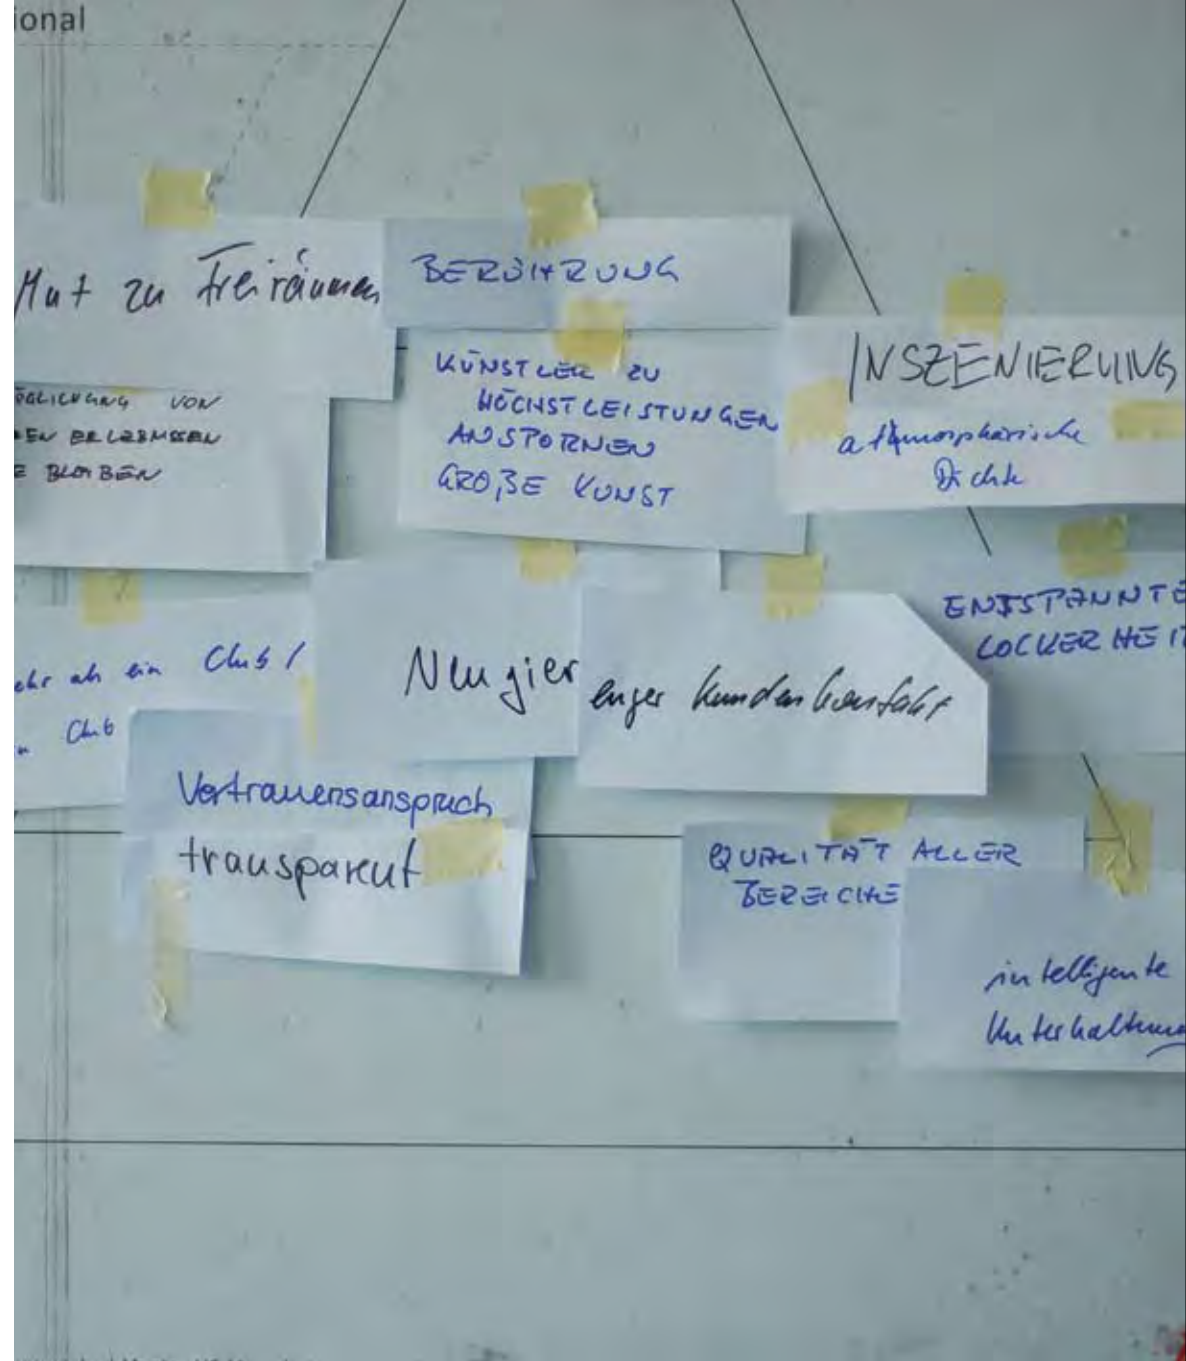 ional
Mut zu Freiräumen
BERÜHRUNG
KÜNSTLER ZU
HÖCHSTLEISTUNGEN
ANSPORNEN
GROßE KUNST
INSZENIERUNG
athmosphärische
Dichte
ÖGLICHUNG VON
EN ERLEBNISSEN
E BLEIBEN
ehr als ein Club /
n Club
Neugier
enger Kundenkontakt
ENTSPANNTE
LOCKERHEIT
Vertrauensanspruch
transparent
QUALITÄT ALLER
BEREICHE
intelligente
Unterhaltung